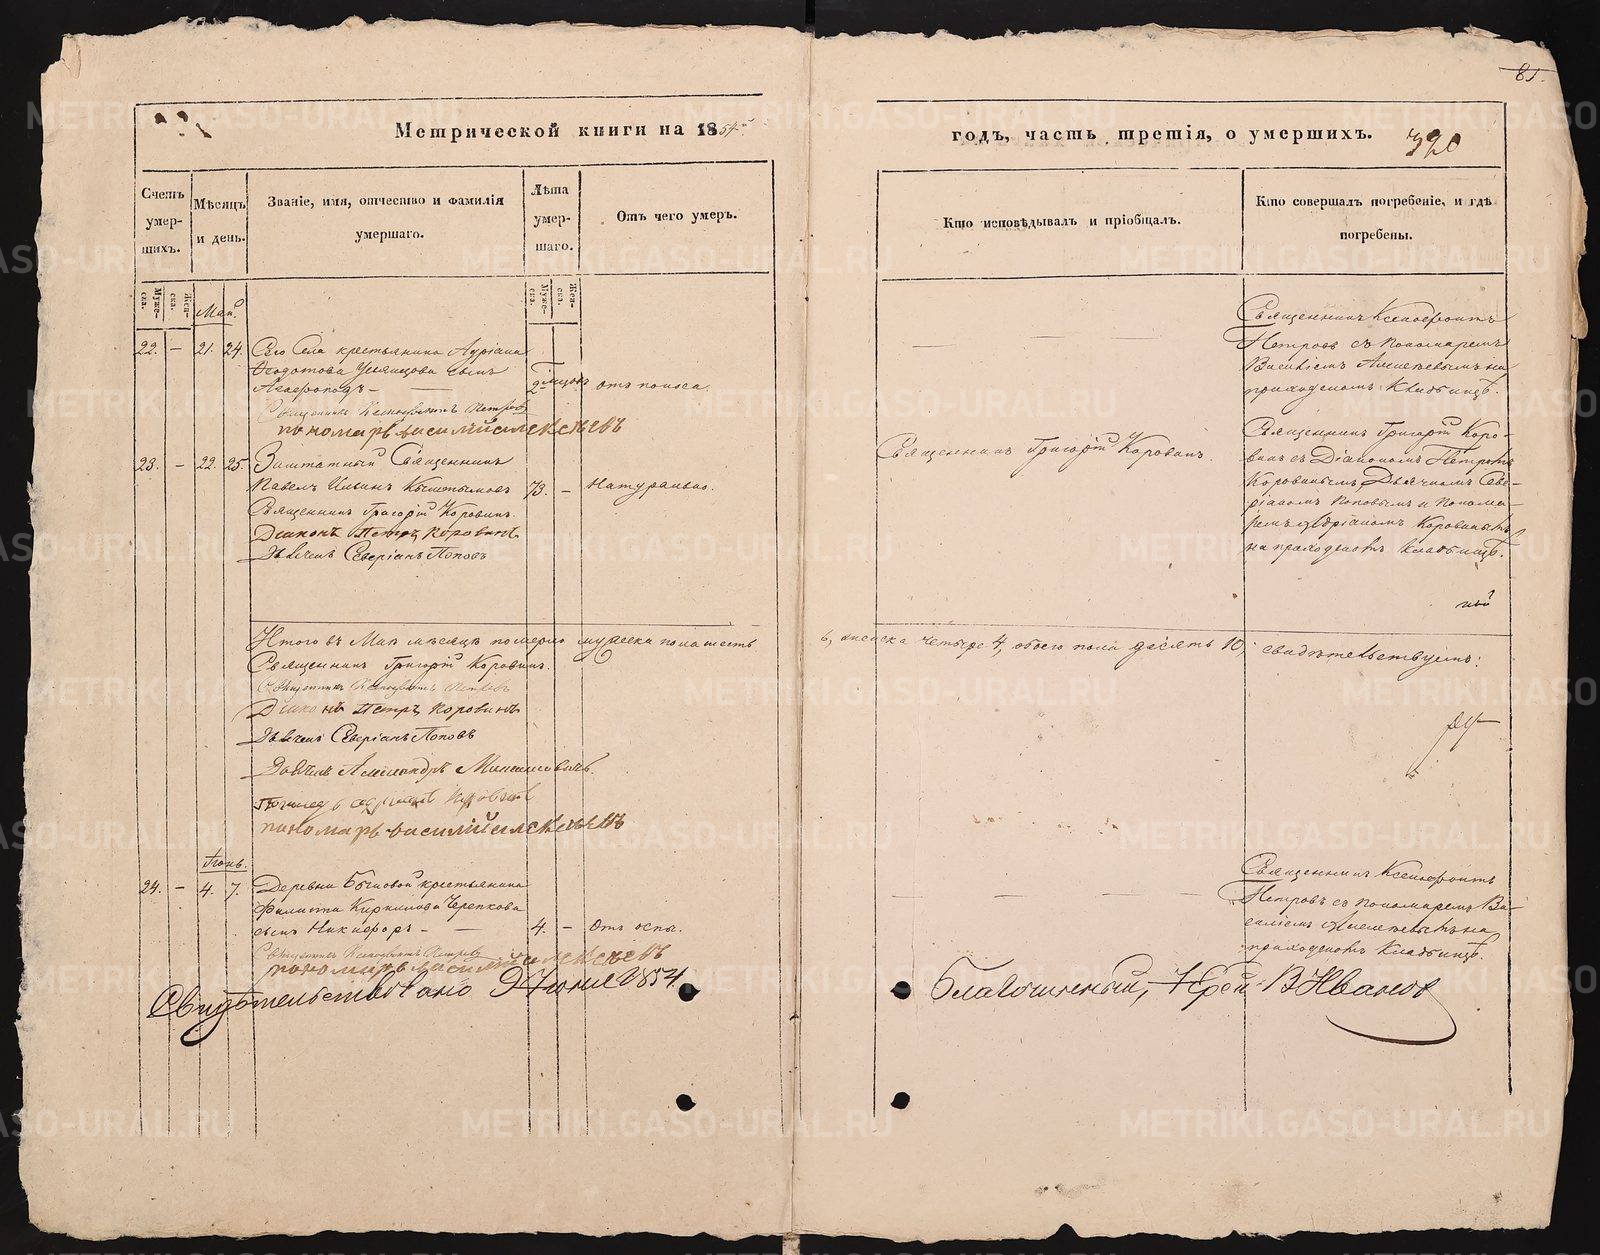 81.
Метрической книги на 1854
годъ, часть третія, о умершихъ.
390
Счетъ умер- шихъ.
Мѣсяцъ и день.
Званіе, имя, отчество и фамилія умершаго.
Лѣта умер- шаго.
Отъ чего умеръ.
Кто исповѣдывалъ и пріобщалъ.
Кто совершалъ погребеніе, и гдѣ погребены.
Муже- ска.
Жен- ска.
Муже- ска.
Жен- ска.
Май.
22. – 21. 24. Сего Села крестьянина Адріана
Ѳеодотова сынъ
2 отъ поноса.
Священникъ Ксенофонтъ Петровъ
пономарь василий алексѣевъ
Священникъ Ксенофонтъ
Петровъ съ пономаремъ
Василіемъ Алексѣевымъ на
приходскомъ Кладбищѣ.
23. – 22. 25. Заштатный Священникъ
Павелъ Ильинъ 73. – Натурально.
Священникъ Григорій Коровинъ.
Діаконъ Петръ Коровинъ
Дьячекъ Северіанъ Поповъ
Священникъ Григорій Коровинъ.
Священникъ Григорій Коро-
винъ съ Діакономъ Петромъ
Коровинымъ, Дьячкомъ Севе-
ріаномъ Поповымъ и Понома-
ремъ Адріаномъ Коровинымъ
на приходскомъ кладбищѣ.
Итого въ Маѣ мѣсяцѣ померло мужеска пола шесть
6, женска четыре 4, обоего пола десять 10, свидѣтельствуемъ:
Священникъ Григорій Коровинъ.
Священникъ Ксенофонтъ Петровъ
Діаконъ Петръ Коровинъ
Дьячекъ Северіанъ Поповъ
Дьячекъ Александръ
пономарь василий алексѣевъ
Іюнь.
24. – 4. 7. Деревни крестьянина
Филиппа Кирилова Черепкова
сынъ Никифоръ – 4. – Отъ оспы.
Священникъ Ксенофонтъ Петровъ
пономарь василий алексѣевъ
Священникъ Ксенофонтъ
Петровъ съ пономаремъ Ва-
силіемъ Алексѣевымъ на
приходскомъ Кладбищѣ.
Свидѣтельствовано 9 Іюня 1854.
Благочинный, Іерей В Ивановъ
METRIKI.GASO-URAL.RU